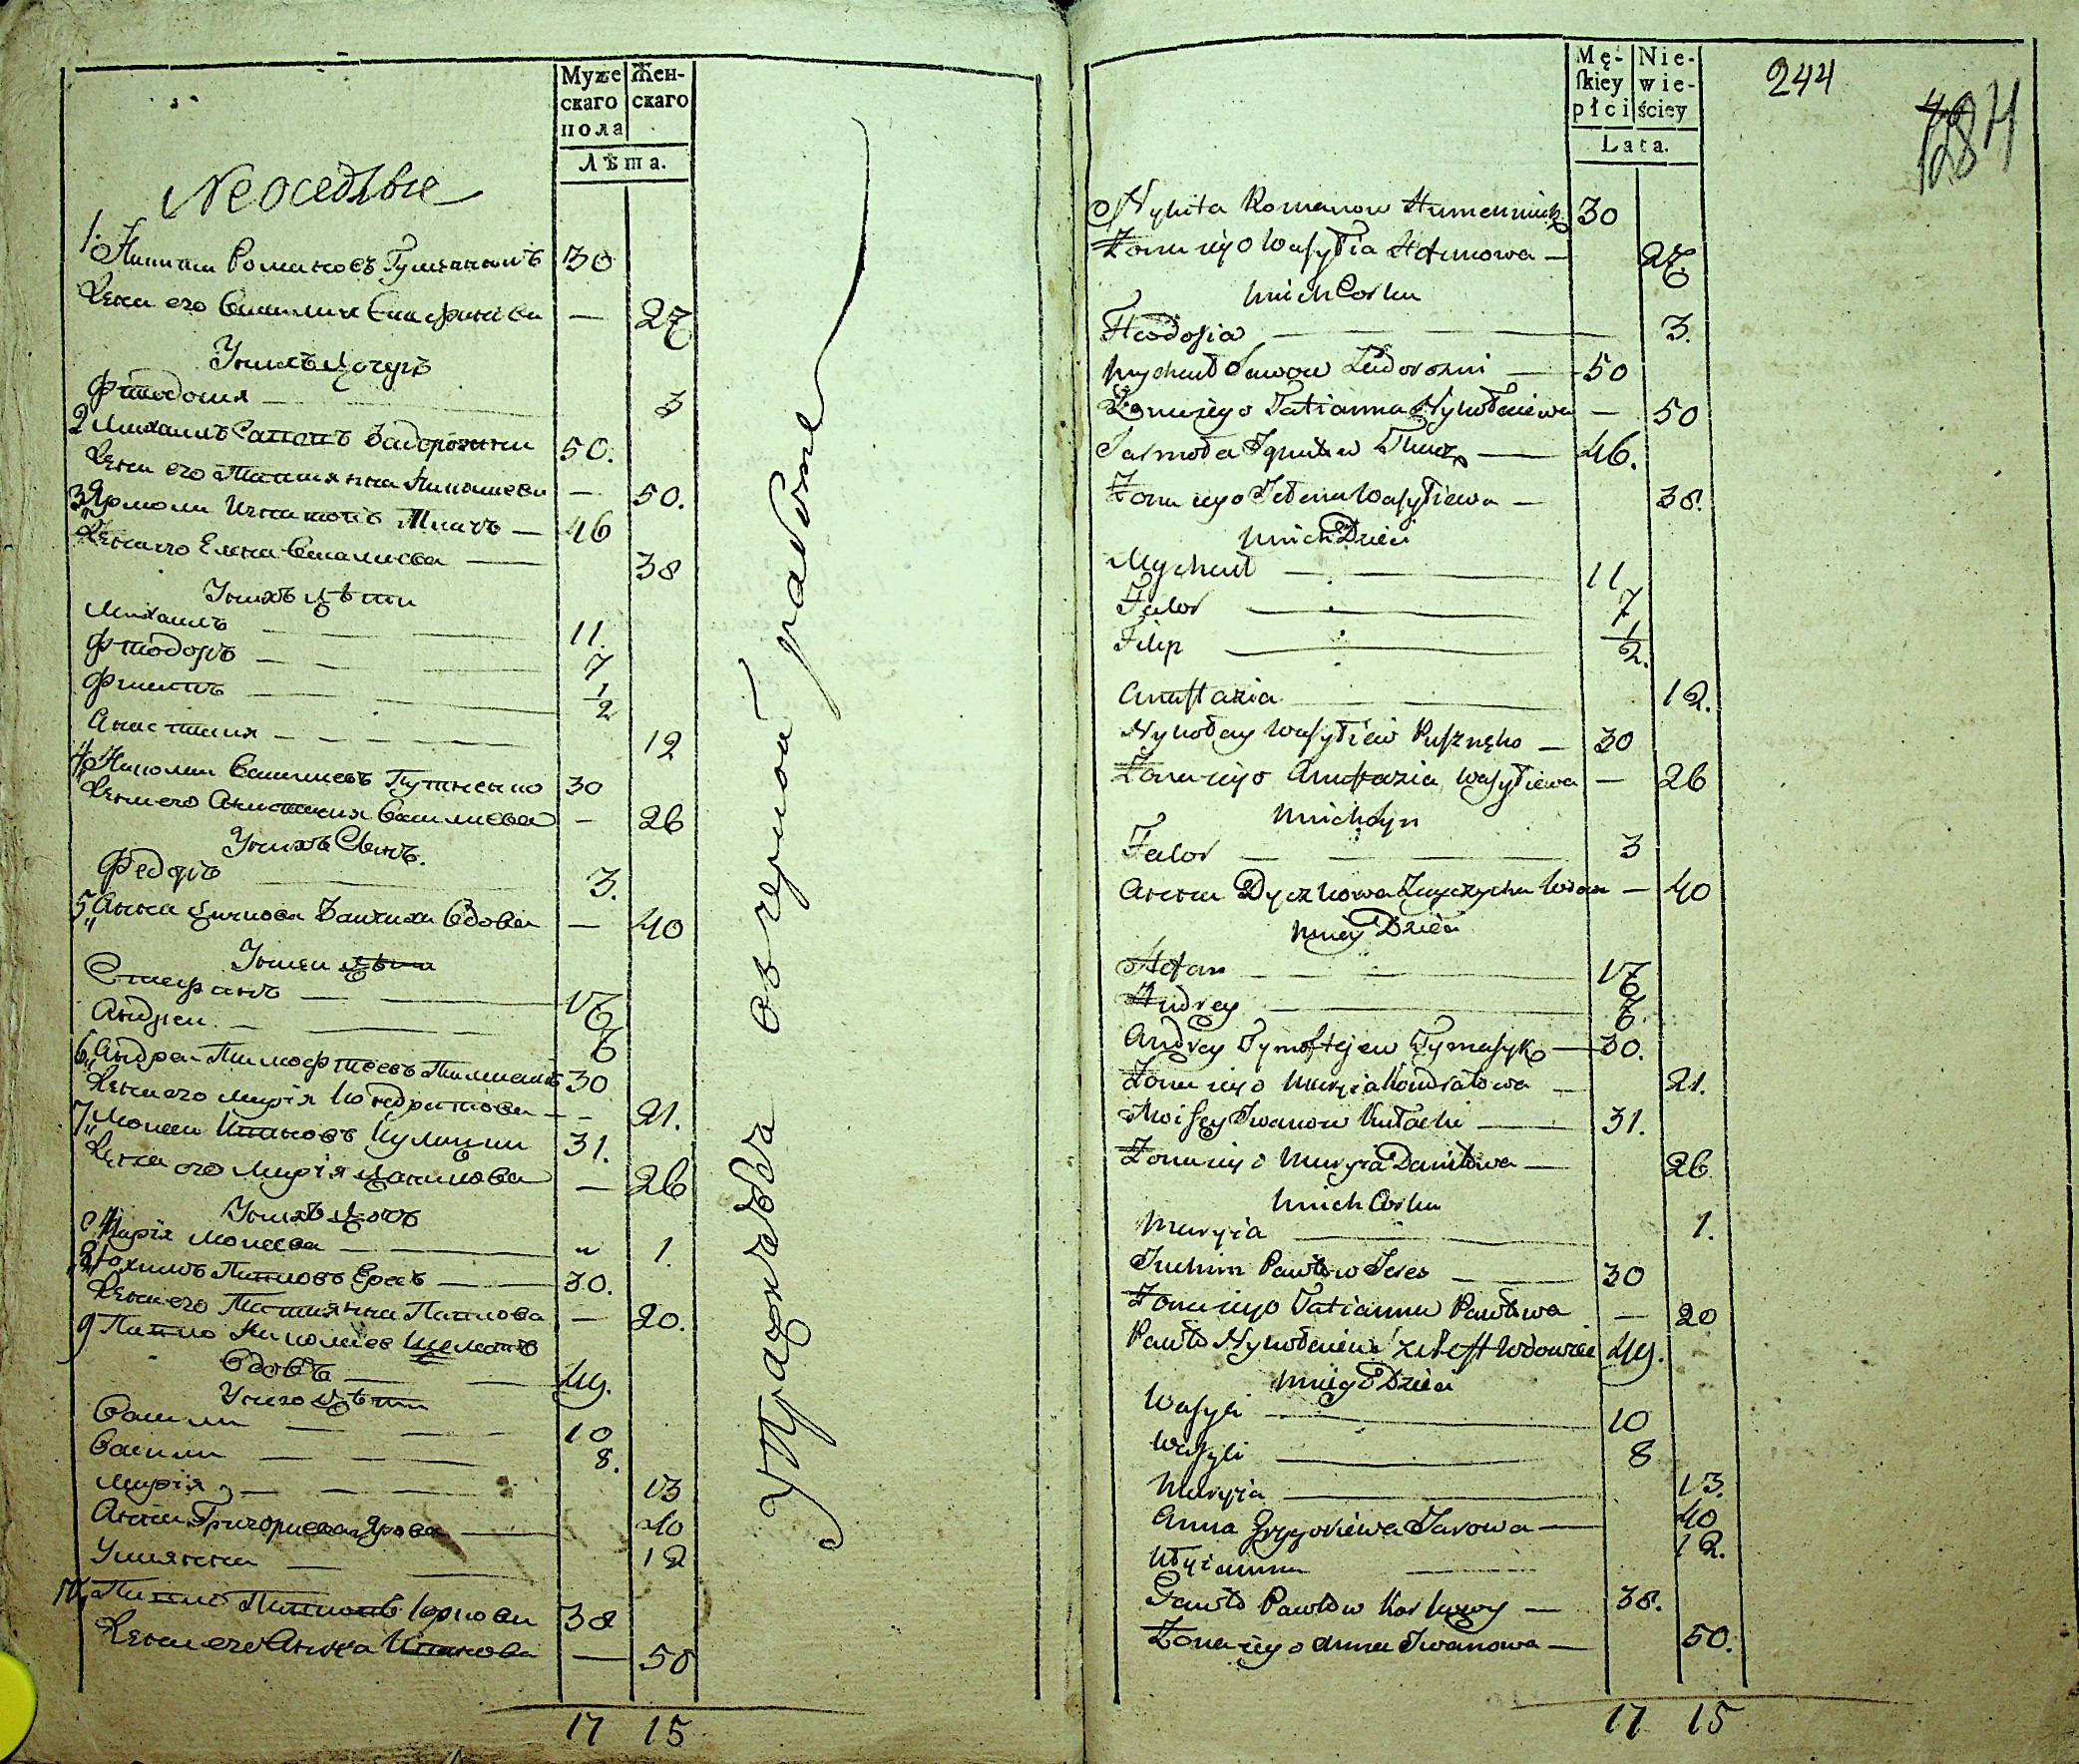 Муже Жен-
скаго скаго
пола
Лѣта.
Неоседлые
1. Никита Романовъ Гуменникъ 30
Жена его Василия Евдокимова — 27
У нихъ дочеръ
Фтеодосия — 3
2 Михаилъ Савовъ Задорожни 50.
Жена его Татиянна Николаева — 50.
3 Ярмола Игнатовъ Ткачъ — 46
Жена его Елена Василиева — 38
У нихъ дѣти
Михаилъ — 11.
Фтеодоръ — 7
Филипъ — 1/2
Анастасия — 12
4 Николай Василиевъ Пушненко 30
Жена его Анастасия Василиева — 26
У нихъ Сынъ.
Федоръ 3.
5 Анна Дичкова Заичиха Вдова — 40
У неи дѣти
Стефанъ — 17
Андреи — 7
6 Андреи Тимофтеевъ 30
Жена его Марія Кондратова — 21.
7 Моисеи Ивановъ Кулации 31.
Жена его Марія Данилова — 26
У нихъ дочъ
Марія Моисеева — 1.
8 Юхимъ Павловъ Ересъ — 30.
Жена его Татиянна Павлова — 20.
9 Павло Николаевъ Шелестъ
Вдовъ — 49.
У него дѣти
Васили — 10
Васили — 8.
Марія — 13
Анна Григориева Ярова — 40
Улиянна — 12
10 Павло Павловъ Коркови 38
Жена его Анна Иванова — 50
17 15
у Праздновова ов черной работе
Mę- Nie-
skiey wie-
płci ściey
Lata.
244
184
Nykita Romanow Humennik 30
Żona iego Wasylia — 27
u nich Corka
Fteodosia — 3.
Mychaył Sawow Zadorozni — 50
Żona iego Tatianna Nykołaiewa — 50
Jarmoła Ignatow Tkacz — 46.
Żona iego Jełena Wasyliewa — 38.
u nich Dzieci
Mychaył — 11
Fedor — 7
Filip — 1/2.
Anastazia — 12.
Nykołay Wasyliew Puszneko — 30
Żona iego Anastazia Wasyliewa — 26
u nich Syn
Fedor — 3
Anna Dyczkowa Zayczycha Wdowa — 40
u niey Dzieci
Stefan — 17
Andrey — 7.
Andrey Tymoftejew Tymasyk — 30.
Żona iego Maryia Kondratowa — 21.
Moisey Iwanow Kułachi — 31.
Żona iego Maryia Daniłowa — 26
u nich Corka
Maryia — 1.
Juchim Pawłow Jeres — 30
Żona iego Tatianna Pawłowa — 20
Pawło Nykołaiew Szełest Wdowiec 49.
u niego Dzieci
Wasyli — 10
Wasyli — 8
Maryia — 13.
Anna Grygoriewa Jarowa — 40
Ulyianna 12.
Pawło Pawłow Korkowy — 38.
Żona iego Anna Iwanowa — 50.
17 15